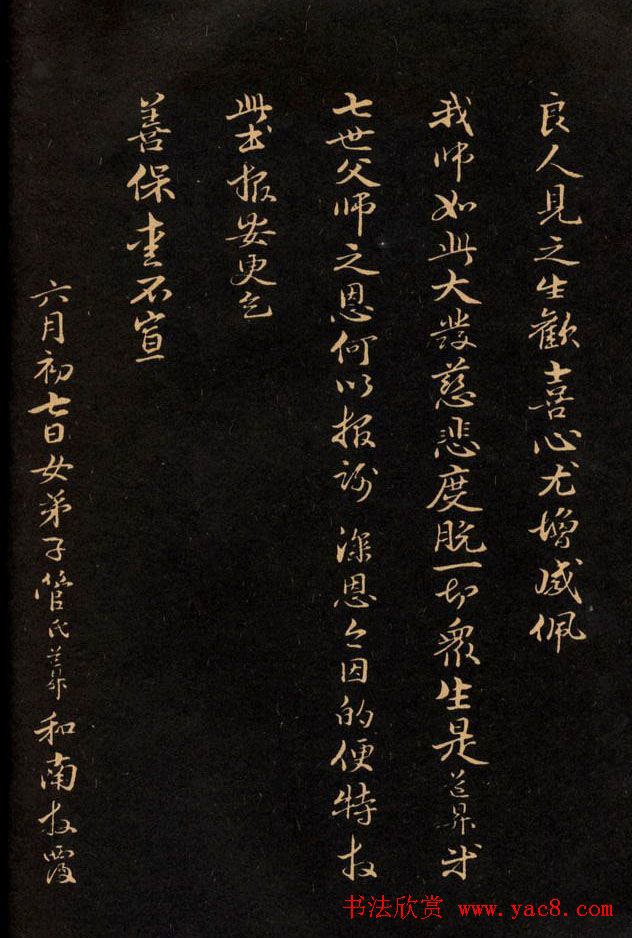 良人見之生歡喜心尤增感佩
我師如此大發慈悲度脫一切衆生是道昇
七世父師之恩何以報謝 深恩今因的便特拜
此書報安更乞
善保重不宣
六月初七日女弟子管氏道昇和南拜覆
书法欣赏 www.yac8.com